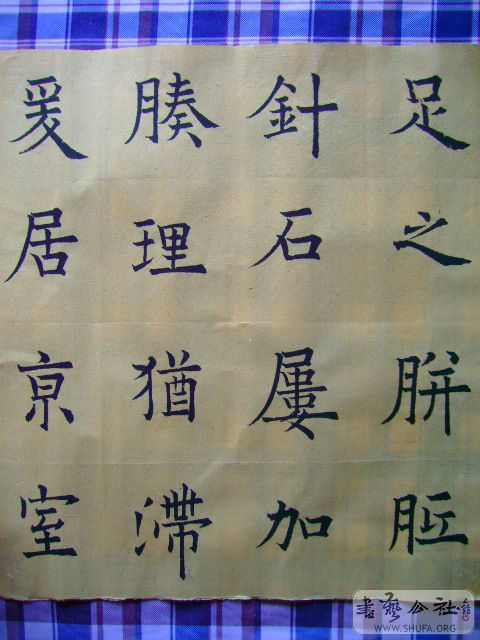 足之胼胝
針石屢加
腠理猶滯
爰居亰室
書藝公社
WWW.SHUFA.ORG